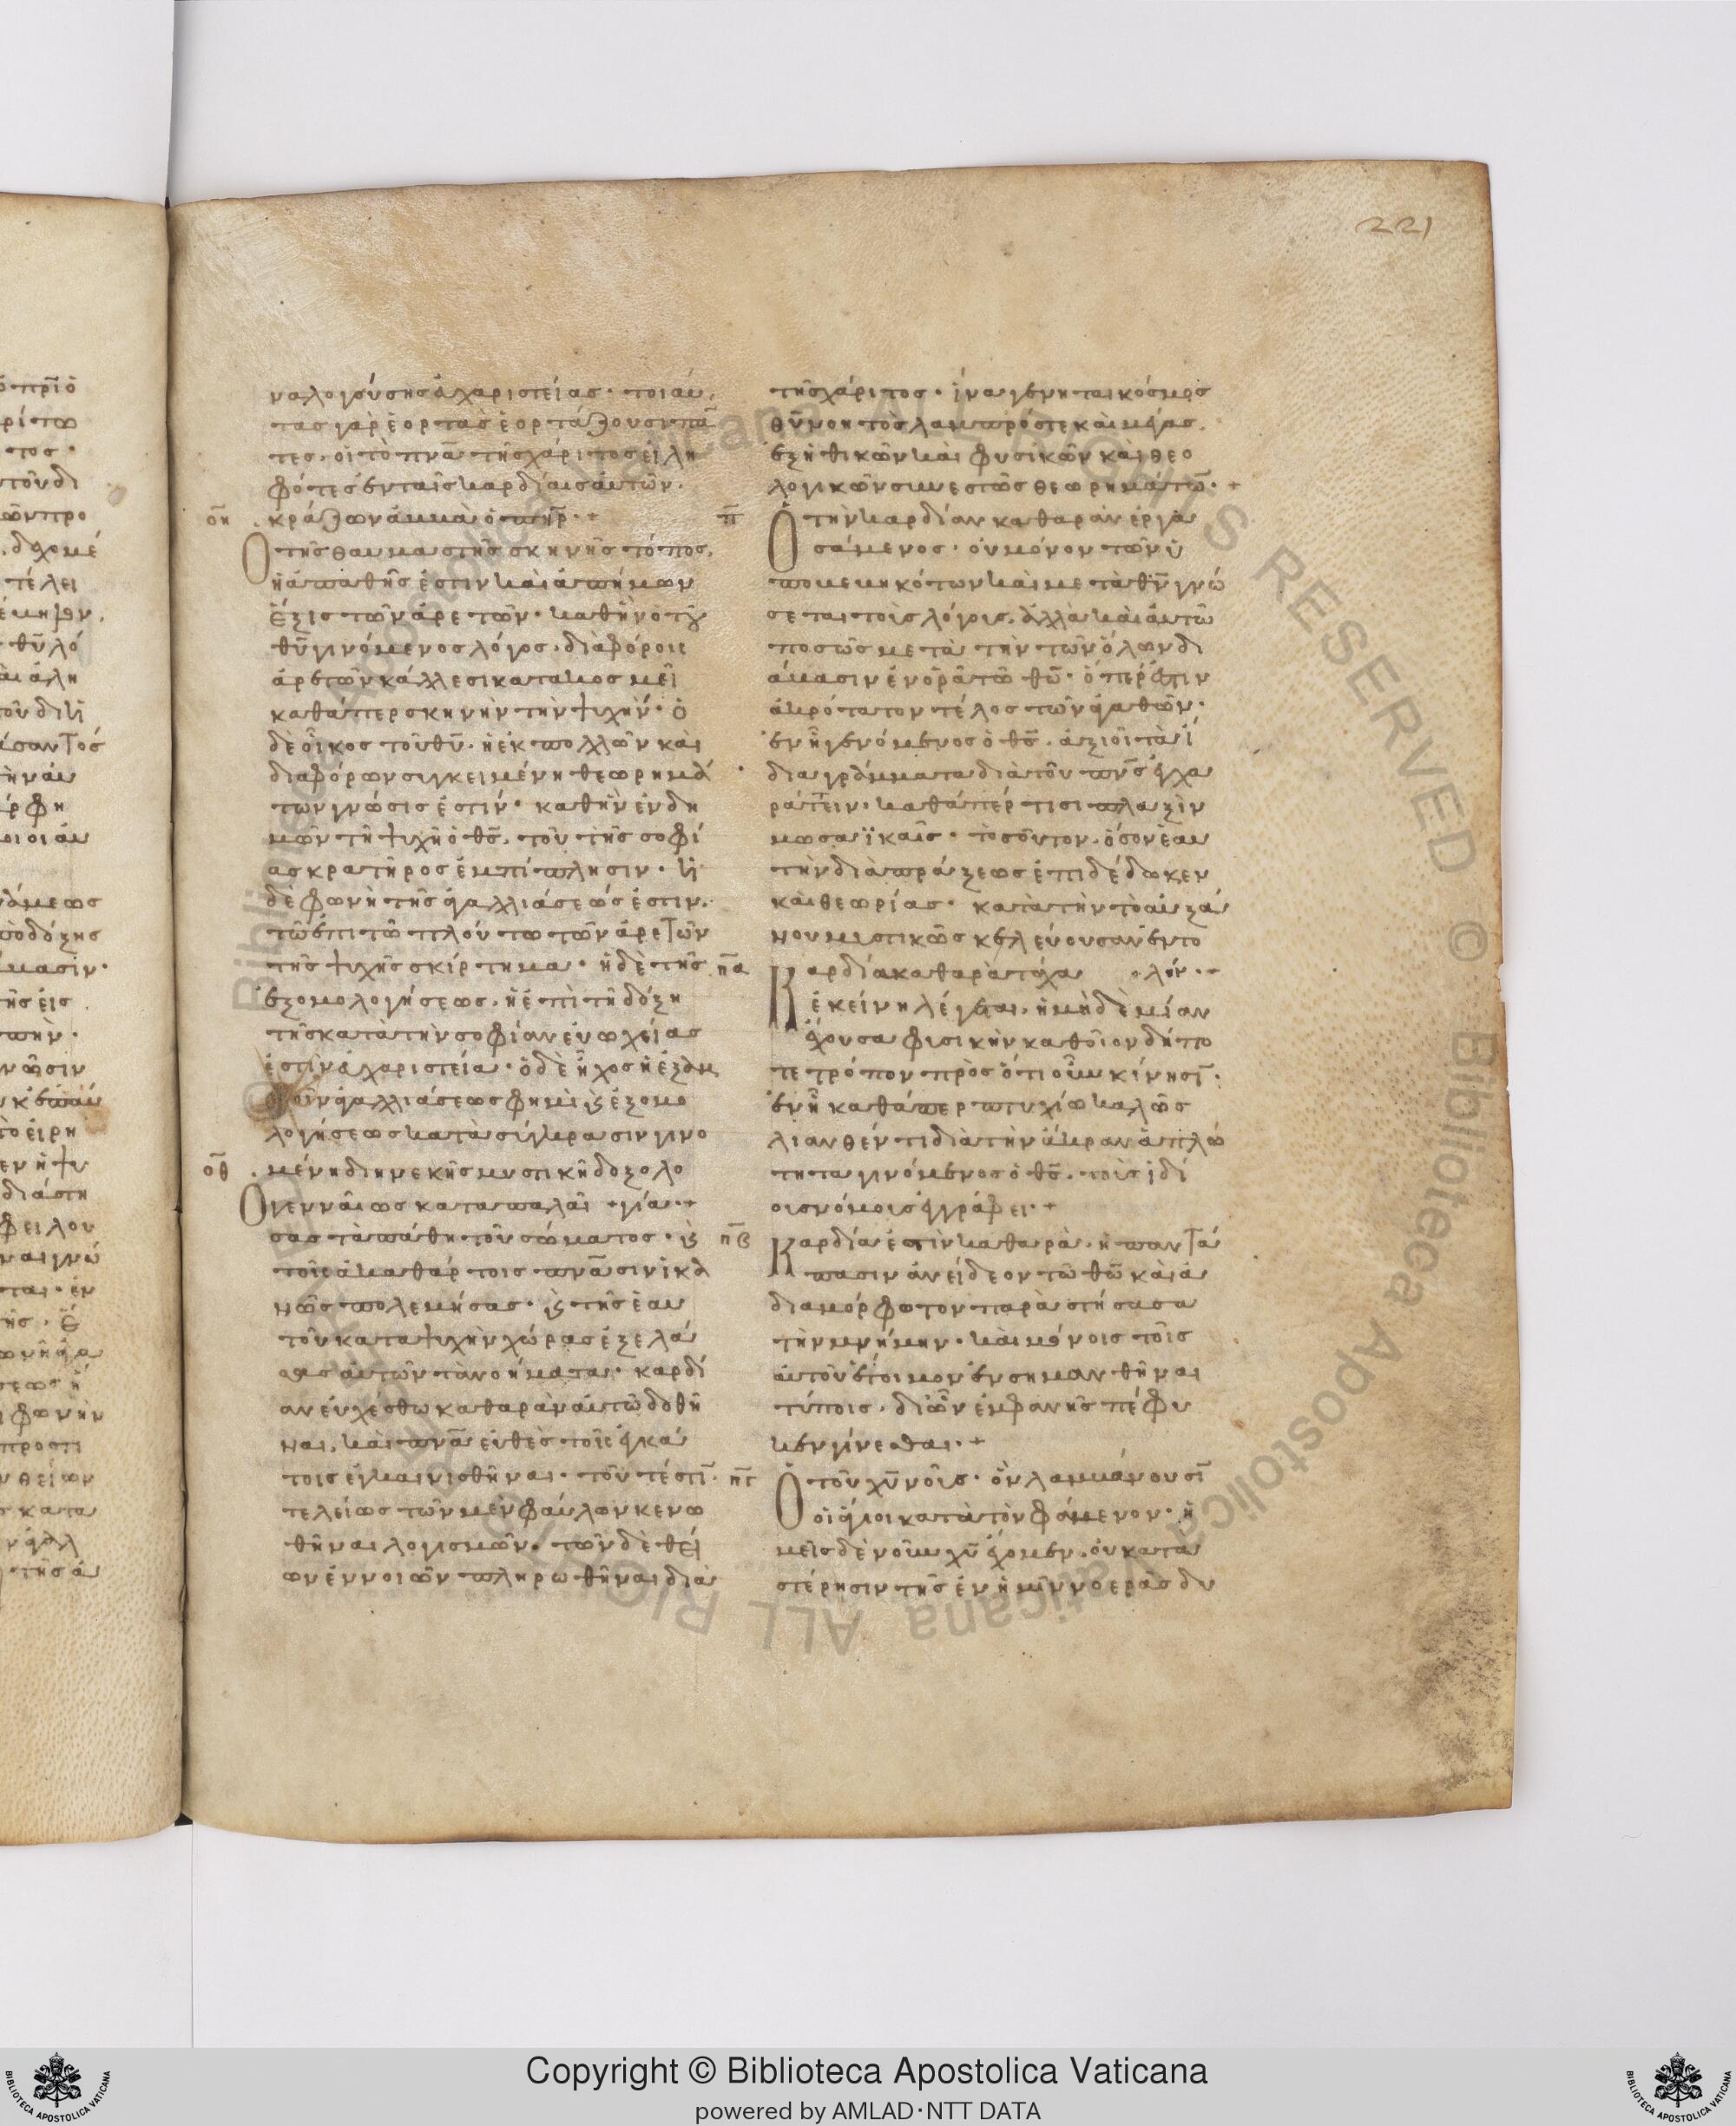 221
ναλογούσης εὐχαριστείας· τοιαύ
τας γὰρ ἑορτὰς ἑορτάζουσι πᾶ
τες, οἱ τὸ πνᾶ τῆς χάριτος εἰλη
φότες ἐν ταῖς καρδίαις αὐτῶν.
κράζων ἀμμὰ ὁ πηρ·+
ο̄η
Ὁ τῆς θαυμαστῆς σκηνῆς τόπος,
ἡ ἀπαθῆς ἐστιν καὶ ἀπήμων
ἕξις τῶν ἀρετῶν· καθ ἣν ὁ τοῦ
θῦ γινόμενος λόγος, διαφόροις
ἀρετῶν κάλλεσι κατακοσμεῖ
καθάπερ σκηνὴν τὴν ψυχήν· ὁ
δὲ οἶκος τοῦ θῦ, ἡ ἐκ πολλῶν καὶ
διαφόρων συγκειμένη θεωρημά
των γνῶσις ἐστίν· καθ ἣν ἐνδη
μῶν τῆ ψυχῆ ὁ θς, τοῦ τῆς σοφί
ας κρατῆρος ἐμπίπλησιν· ἡ
δὲ φωνὴ τῆς ἀγαλλιάσεώς ἐστιν,
τῶ ἐπὶ τῶ πλούτω τῶν ἀρετῶν
τῆς ψυχῆς σκίρτημα· ἡ δὲ τῆς
ἐξομολογήσεως, ἡ ἐπὶ τῆ δόξη
τῆς κατὰ τὴν σοφίαν εὐωχείας
ἐστὶν εὐχαριστεία· ὁ δὲ ἦχος ἡ ἐξ ἀμ
φοῖν ἀγαλλιάσεως φημὶ καὶ ἐξομο
λογήσεως κατὰ σύγκρασιν γινο
μένη διηνεκῆς μυστικὴ δοξολο
ο̄θ
Ὁ γενναίως καταπαλαῖ +γία·+
σας τὰ πάθη τοῦ σώματος· καὶ
τοῖς ἀκαθάρτοις πνᾶσιν ἱκα
νῶς πολεμήσας· καὶ τῆς ἑαυ
τοῦ κατα ψυχὴν χώρας ἐξελά
σας αὐτῶν τὰ νοήματα· καρδί
αν εὐχέσθω καθαρὰν αὐτῶ δοθῆ
ναι, καὶ πνᾶ εὐθὲς τοῖς ἐγκά
τοις ἐγκαινισθῆναι· τοῦ τέστι
τελείως τῶν μὲν φαύλων κενω
θῆναι λογισμῶν· τῶν δὲ θεί
ων ἐννοιῶν πληρωθῆναι διὰ
τῆς χάριτος· ἵνα γένηται κόσμος
θῦ νοητὸς λαμπρός τε καὶ μέγας.
ἐξ ἠθικῶν καὶ φυσικῶν καὶ θεο
λογικῶν συνεστὼς θεωρημάτω·+
π̄
Ὁ τὴν καρδίαν καθαρὰν ἐργα
σάμενος· οὐ μόνον τῶν ὑ
ποβεβηκότων καὶ μετὰ θν γνώ
σεται τοὺς λόγους, ἀλλὰ καὶ αὐτῶ
ποσῶς μετὰ τὴν τῶν ὅλων δι
άβασιν ἐνορᾶ τῶ θῶ· ὅπερ ἐστιν
ἀκρότατον τέλος τῶν ἀγαθῶν·
ἐν ἧ γενόμενος ὁ θς, ἀξιοῖ τὰ ἴ
δια γράμματα διὰ τοῦ πνς ἐγχα
ράττειν· καθάπέρ τισι πλαξὶν
μωσαϊκαῖς· τοσοῦτον, ὅσον ἑαυ
τὴν διὰ πράξεως ἐπιδέδωκεν
καὶ θεωρίας· κατὰ τὴν τὸ αὐξά
νου μυστικῶς κελεύουσαν ἐντο
π̄α
Καρδία καθαρὰ τάχα ολήν·+
ἐκείνη λέγεται, ἡ μὴ δὲ μίαν
ἔχουσα φυσικὴν καθ οἷον δήπο
τε τρόπον πρὸς ὁτιοῦν κίνησι·
ἐν ἧ καθάπερ πτυχίω καλῶς
λιανθέντι διὰ τὴν ἄκραν ἁπλό
τητα γινόμενος ὁ θς, τοὺς ἰδί
ους νόμους ἐγγράφει·+
π̄β
Καρδία ἐστὶν καθαρὰ, ἡ παντά
πασιν ἀνείδεον τῶ θῶ καὶ ἀ
διαμόρφωτον παραστήσασα
τὴν μνήμην· καὶ μόνοις τοῖς
αὐτοῦ ἕτοιμον ἐνσημανθῆναι
τύποις, δι ὧν ἐμφανὴς πέφυ
κεν γίνεσθαι·+
π̄γ
Ὁ τοῦ χῦ νοῦς· ὃν λαμβάνουσῑ
οἱ ἅγιοι κατὰ τὸν φάμενον· ἡ
μεῖς δὲ νοῦν χῦ ἔχομεν, οὐ κατὰ
στέρησιν τῆς ἐν ἡμῖν νοερὰς δυ
Copyright © Biblioteca Apostolica Vaticana
powered by AMLAD·NTT DATA